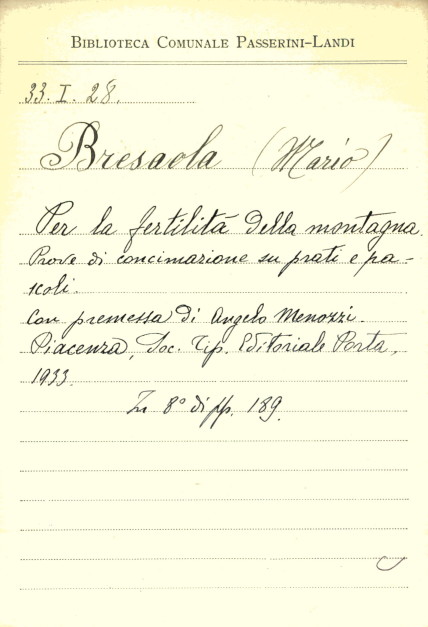 BIBLIOTECA COMUNALE PASSERINI-LANDI
33. I. 28.
Bresaola (Mario)
Per la fertilità della montagna.
Prove di concimazione su prati e pa-
scoli.
Con premessa di Angelo Menozzi.
Piacenza, Soc. Tip. Editoriale Porta,
1933.
In 8° di pp. 189.